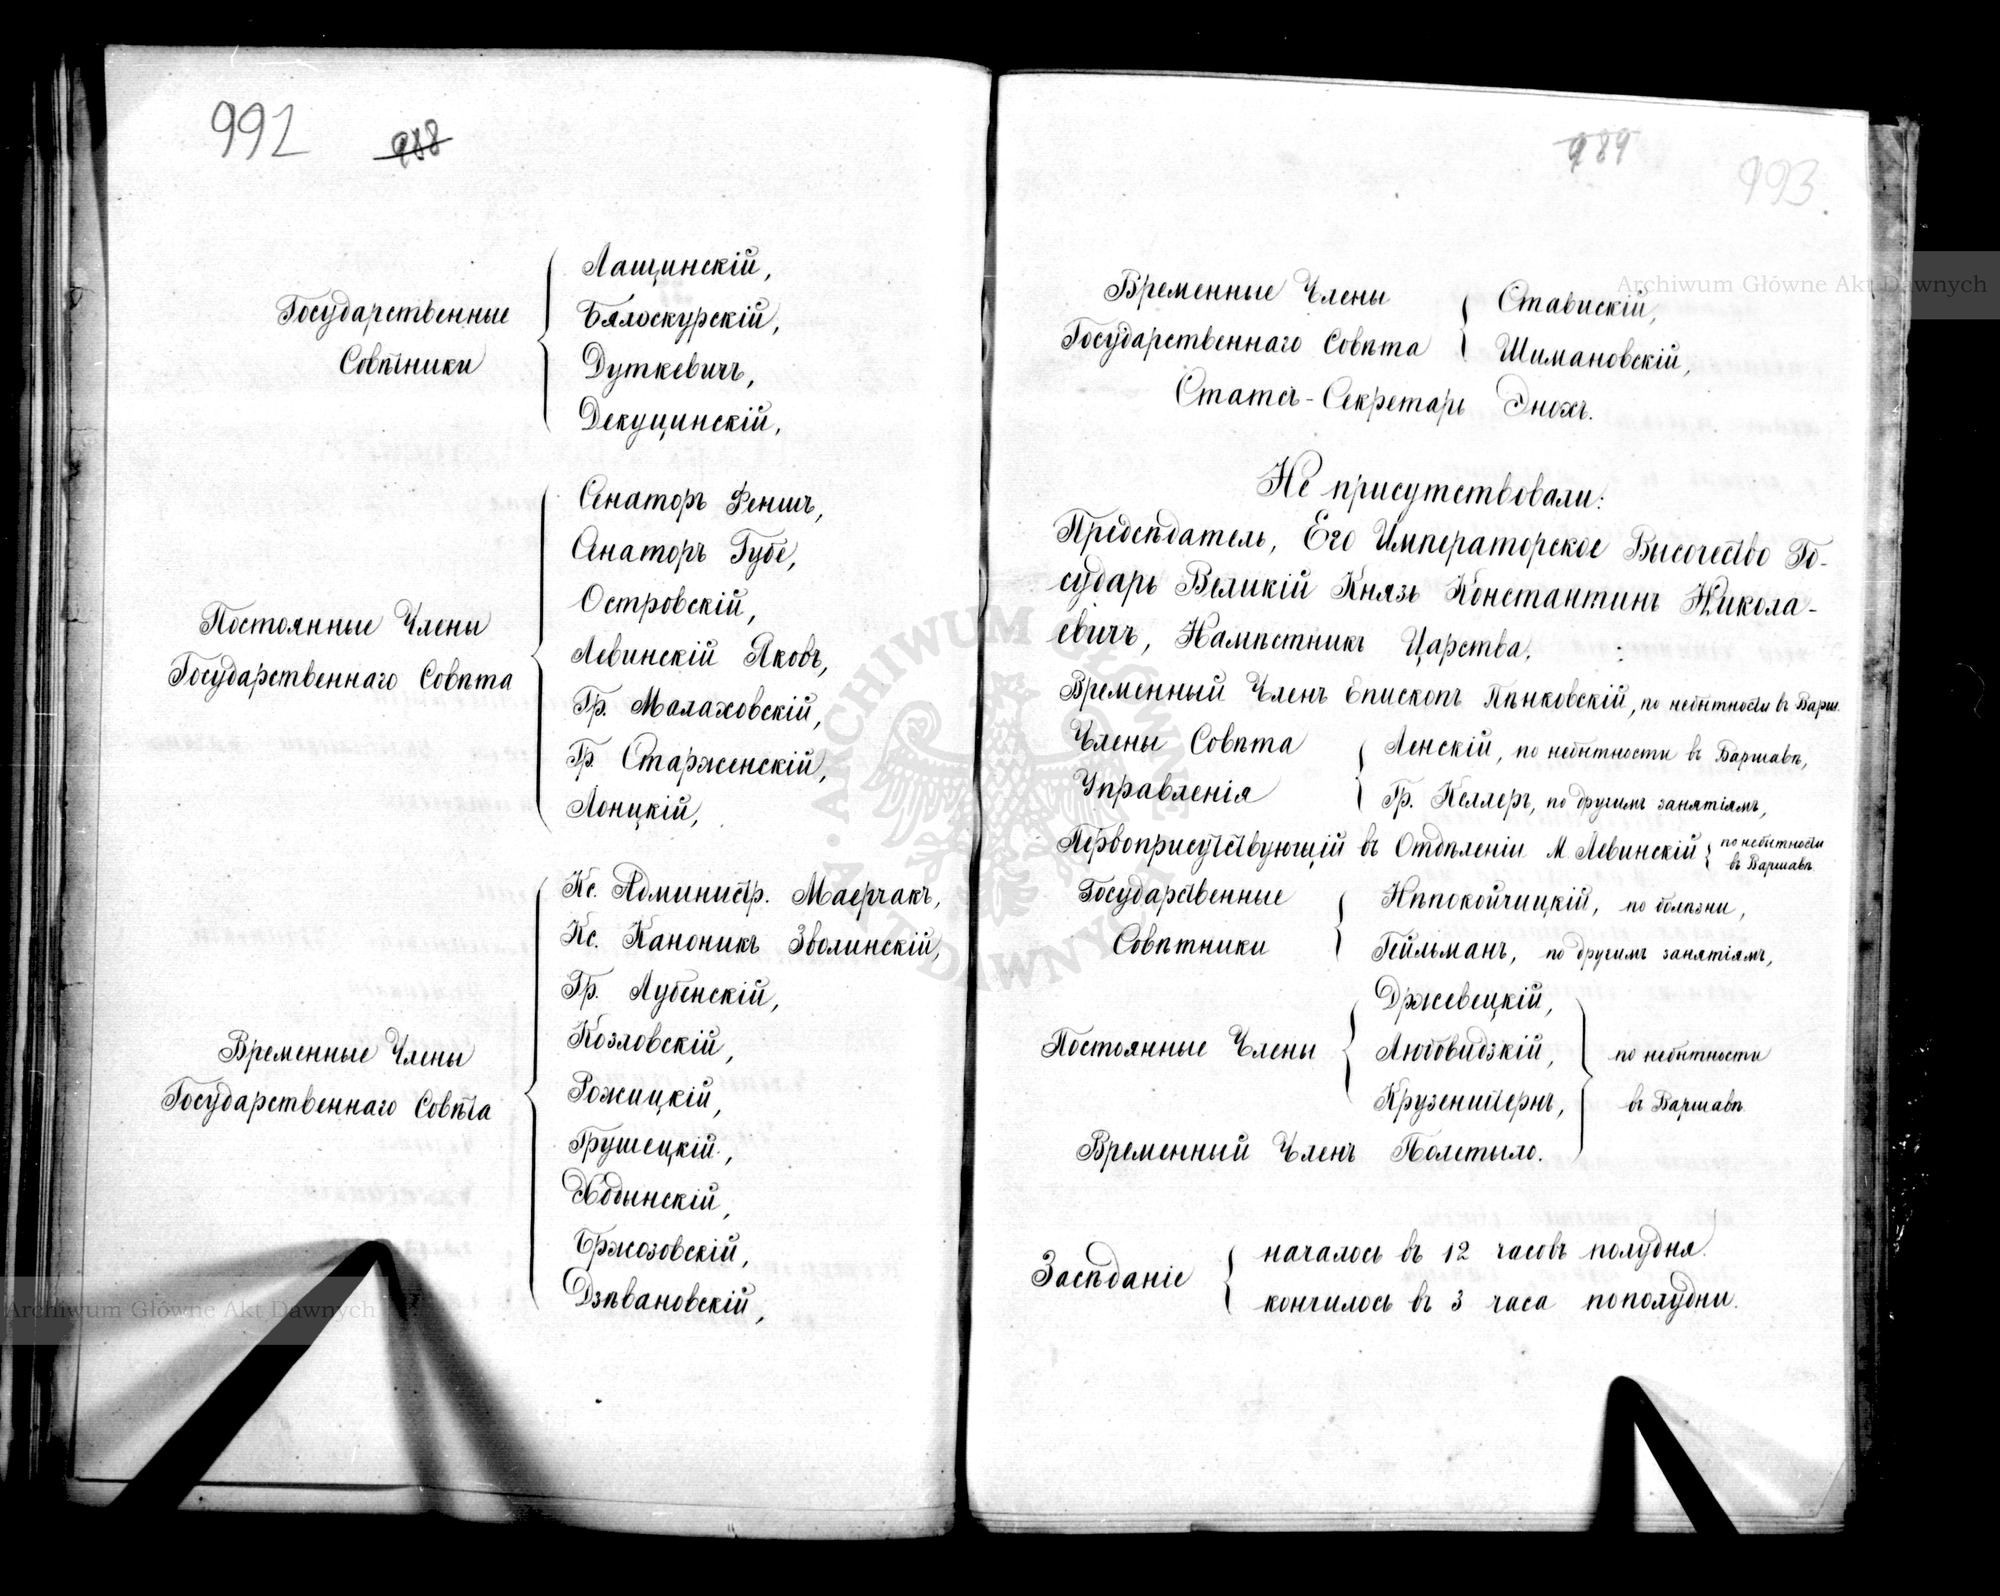 992
988
Лащинскій,
Государственные
Бялоскурскій,
Совѣтники
Дуткевичъ,
Декуцинскій,
Сенаторъ Феншъ,
Сенаторъ Губе,
Островскій,
Постоянные Члены
Левинскій Яковъ,
Государственнаго Совѣта
Гр. Малаховскій,
Гр. Старженскій,
Лонцкій,
Кс. Администр. Маерчакъ,
Кс. Каноникъ Зволинскій,
Гр. Лубенскій,
Козловскій,
Временные Члены
Рожицкій,
Государственнаго Совѣта
Грушецкій,
Хобынскій,
Бржозовскій,
Дзѣвановскій,
989
993
Временные Члены
Ставискій,
Государственнаго Совѣта
Шимановскій,
Статсъ-Секретарь Энохъ.
Не присутствовали:
Предсѣдатель, Его Императорское Высочество Го-
сударь Великій Князь Константинъ Никола-
евичъ, Намѣстникъ Царства.
Временный Членъ Епископъ Пѣнковскій, по небытности въ Варш.
Члены Совѣта
Ленскій, по небытности въ Варшавѣ,
Управленія
Гр. Келлеръ, по другимъ занятіямъ,
Первоприсутствующій въ Отдѣленіи М. Левинскій
по небытности
въ Варшавѣ.
Государственные
Нѣпокойчицкій, по болѣзни,
Совѣтники
Гейльманъ, по другимъ занятіямъ,
Држевецкій,
Постоянные Члены
Любовидзкій,
по небытности
Крузенштернъ,
въ Варшавѣ.
Временный Членъ Полетыло.
началось въ 12 часовъ полудня.
Засѣданіе
кончилось въ 3 часа пополудни.
Archiwum Główne Akt Dawnych
Archiwum Główne Akt Dawnych
ARCHIWUM GŁÓWNE AKT DAWNYCH